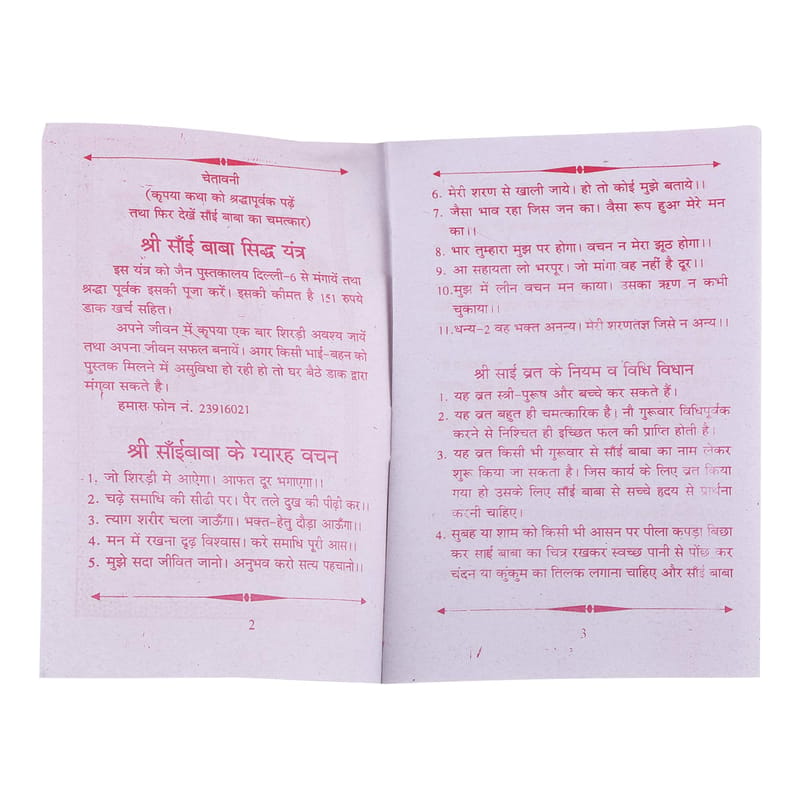 चेतावनी
(कृपया कथा को श्रद्धापूर्वक पढ़ें
तथा फिर देखें साँई बाबा का चमत्कार)
श्री साँई बाबा सिद्ध यंत्र
इस यंत्र को जैन पुस्तकालय दिल्ली-6 से मंगायें तथा
श्रद्धा पूर्वक इसकी पूजा करें। इसकी कीमत है 151 रुपये
डाक खर्च सहित।
अपने जीवन में कृपया एक बार शिरड़ी अवश्य जायें
तथा अपना जीवन सफल बनायें। अगर किसी भाई-बहन को
पुस्तक मिलने में असुविधा हो रही हो तो घर बैठे डाक द्वारा
मंगवा सकते है।
हमास फोन नं. 23916021
श्री साँईबाबा के ग्यारह वचन
1. जो शिरड़ी मे आऐगा। आफत दूर भगाएगा।।
2. चढ़े समाधि की सीढी पर। पैर तले दुख की पीढ़ी कर।।
3. त्याग शरीर चला जाऊँगा। भक्त-हेतु दौड़ा आऊँगा।।
4. मन में रखना दृढ़ विश्वास। करे समाधि पूरी आस।।
5. मुझे सदा जीवित जानो। अनुभव करो सत्य पहचानो।।
2
6. मेरी शरण से खाली जाये। हो तो कोई मुझे बताये।।
7. जैसा भाव रहा जिस जन का। वैसा रूप हुआ मेरे मन
का।।
8. भार तुम्हारा मुझ पर होगा। वचन न मेरा झूठ होगा।।
9. आ सहायता लो भरपूर। जो मांगा वह नहीं है दूर।।
10. मुझ में लीन वचन मन काया। उसका ऋण न कभी
चुकाया।।
11. धन्य-2 वह भक्त अनन्य। मेरी शरणतज्ञ जिसे न अन्य।।
श्री साई व्रत के नियम व विधि विधान
1. यह व्रत स्त्री-पुरूष और बच्चे कर सकते हैं।
2. यह व्रत बहुत ही चमत्कारिक है। नौ गुरूवार विधिपूर्वक
करने से निश्चित ही इच्छित फल की प्राप्ति होती है।
3. यह व्रत किसी भी गुरूवार से साँई बाबा का नाम लेकर
शुरू किया जा सकता है। जिस कार्य के लिए व्रत किया
गया हो उसके लिए साँई बाबा से सच्चे हृदय से प्रार्थना
करनी चाहिए।
4. सुबह या शाम को किसी भी आसन पर पीला कपड़ा बिछा
कर साई बाबा का चित्र रखकर स्वच्छ पानी से पोंछ कर
चंदन या कुंकुम का तिलक लगाना चाहिए और साँई बाबा
3